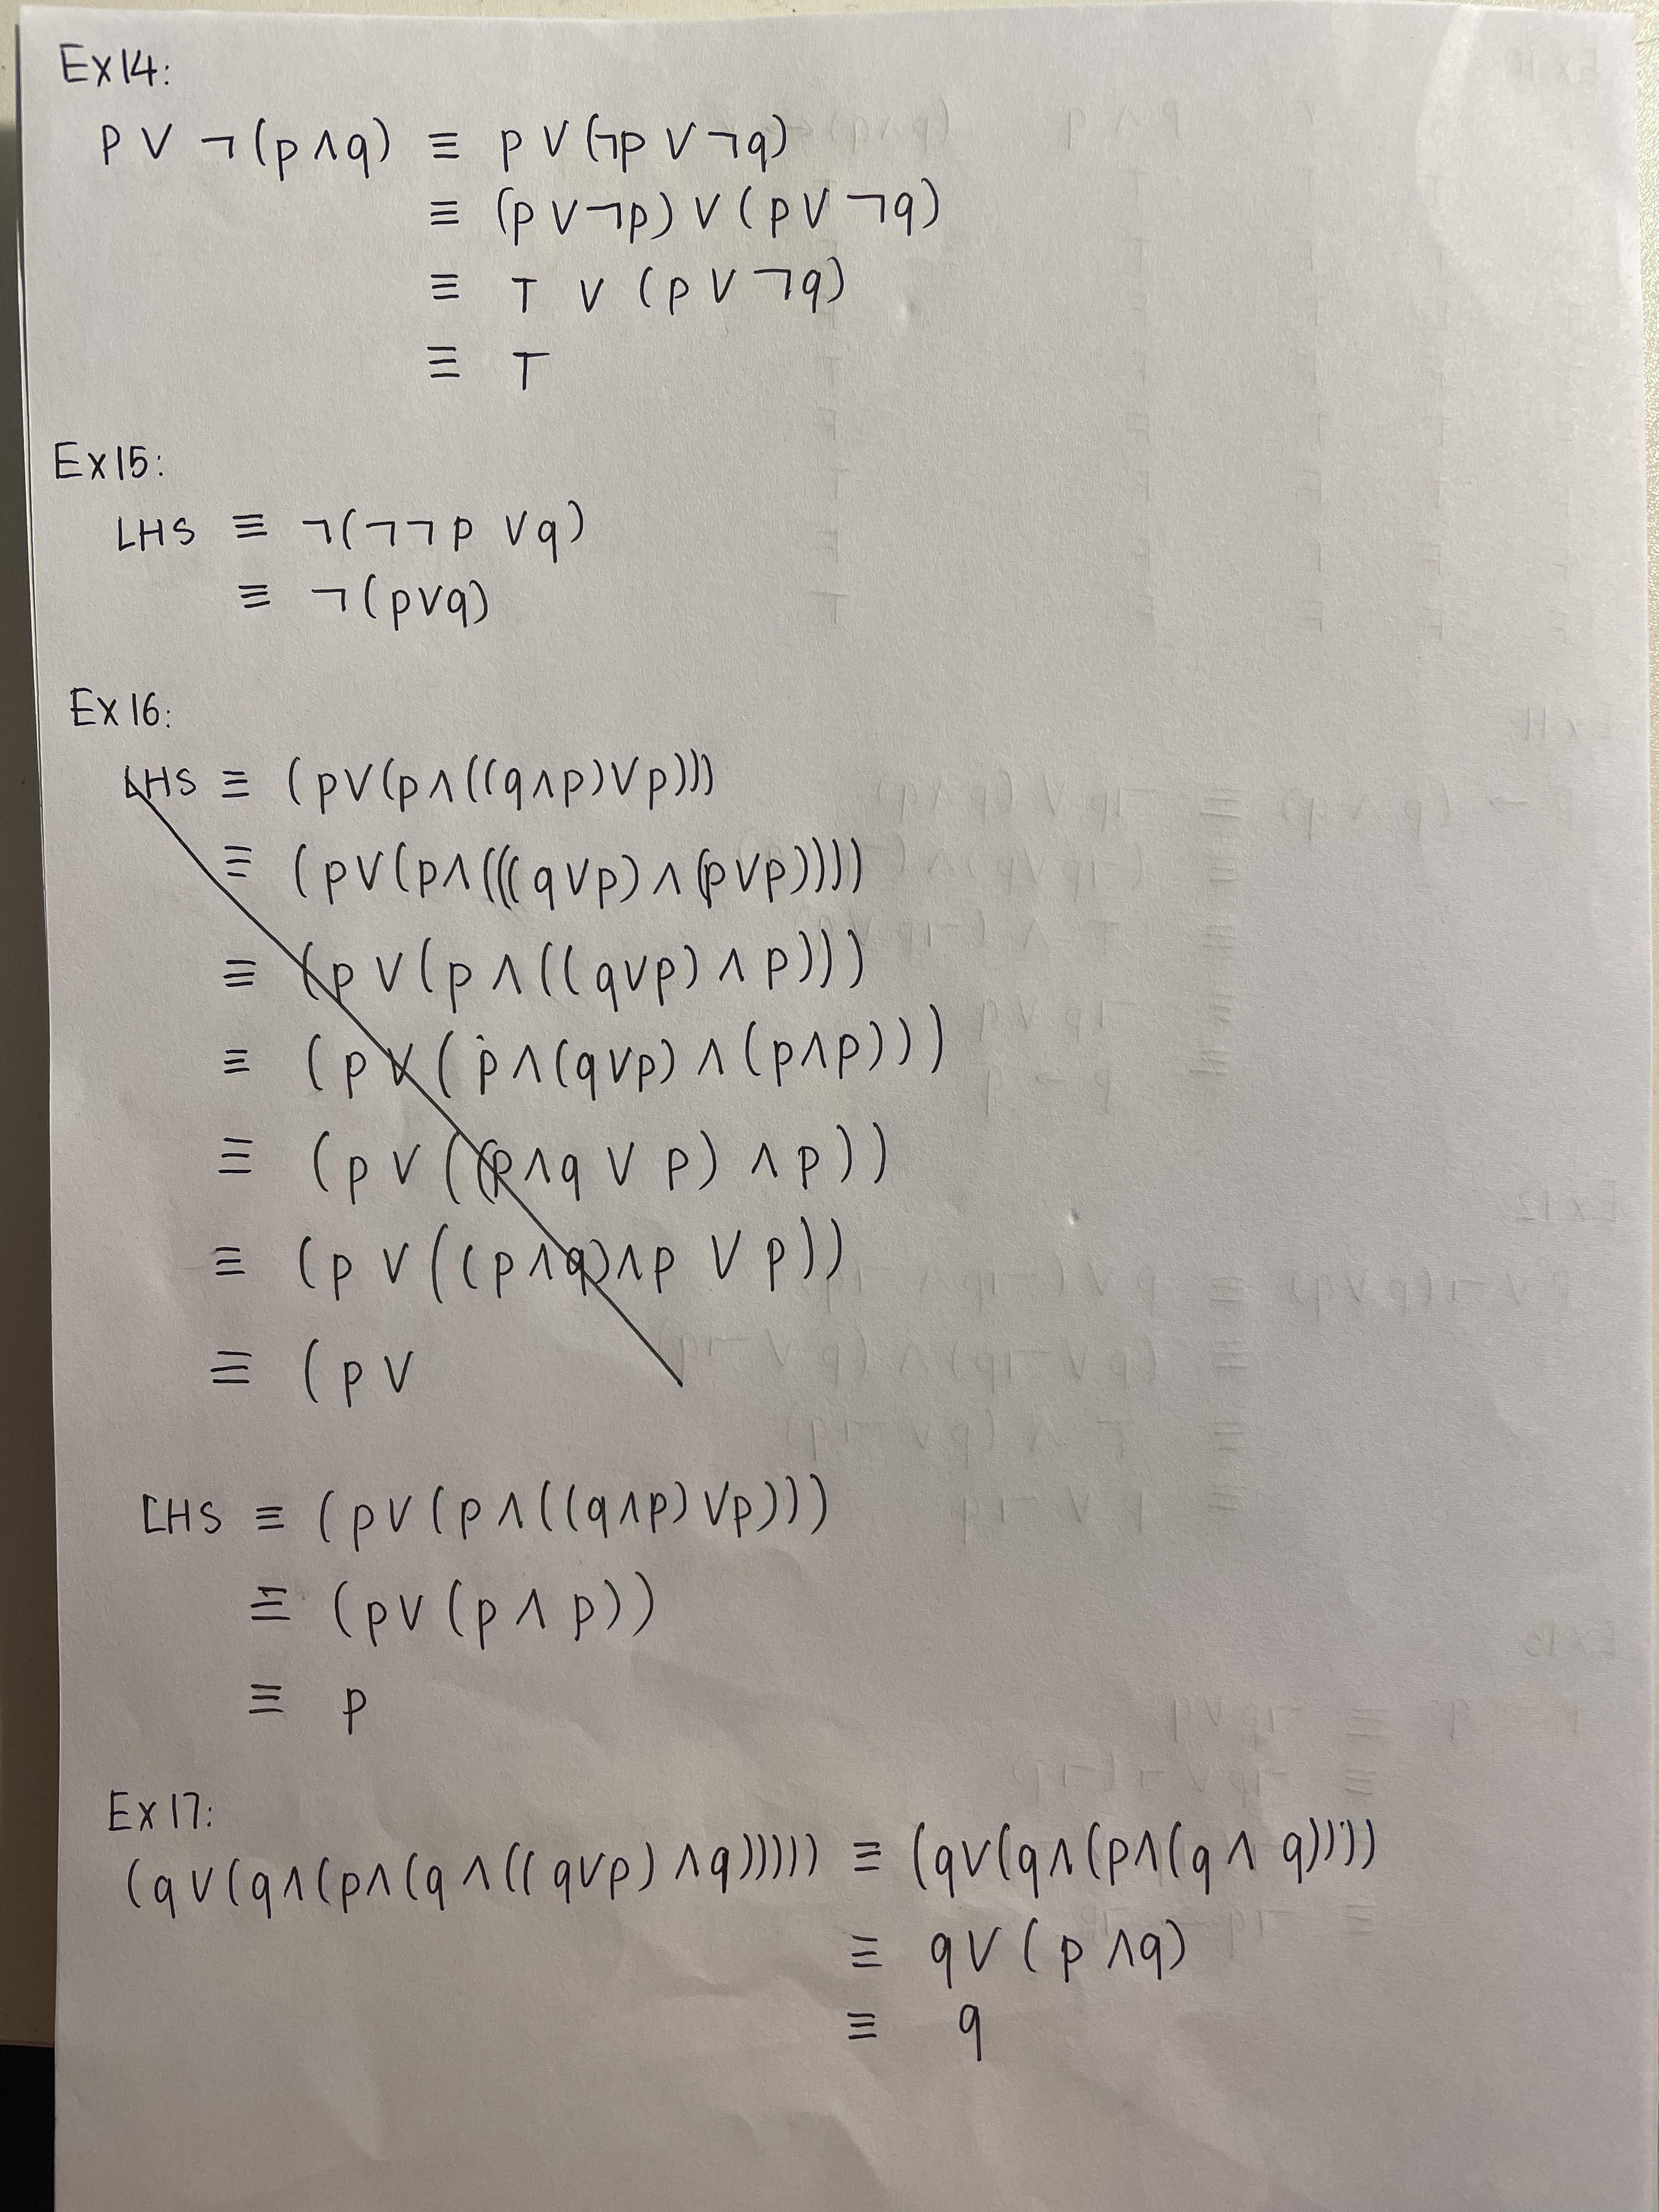 Ex14:
p ∨ ¬(p ∧ q) ≡ p ∨ (¬p ∨ ¬q)
≡ (p ∨ ¬p) ∨ (p ∨ ¬q)
≡ T ∨ (p ∨ ¬q)
≡ T
Ex15:
LHS ≡ ¬(¬¬p ∨ q)
≡ ¬(p ∨ q)
Ex16:
LHS ≡ (p ∨ (p ∧ ((q ∧ p) ∨ p)))
≡ (p ∨ (p ∧ (((q ∨ p) ∧ (p ∨ p))))
≡ (p ∨ (p ∧ ((q ∨ p) ∧ p)))
≡ (p ∨ (p ∧ (q ∨ p) ∧ (p ∧ p)))
≡ (p ∨ ((p ∧ q ∨ p) ∧ p))
≡ (p ∨ ((p ∧ q) ∧ p ∨ p))
≡ (p ∨
LHS ≡ (p ∨ (p ∧ ((q ∧ p) ∨ p)))
≡ (p ∨ (p ∧ p))
≡ p
Ex17:
(q ∨ (q ∧ (p ∧ (q ∧ ((q ∨ p) ∧ q))))) ≡ (q ∨ (q ∧ (p ∧ (q ∧ q))))
≡ q ∨ (p ∧ q)
≡ q